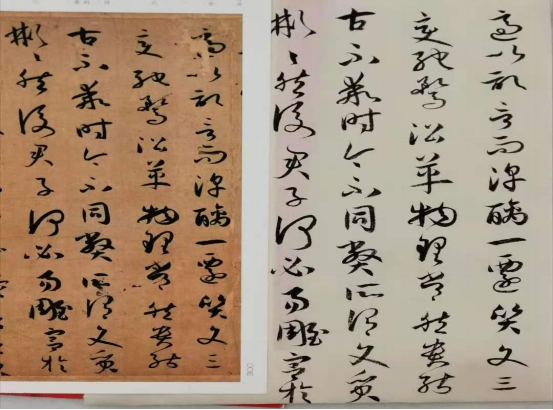 適以記言而淳醨一遷質文三
變馳騖沿革物理常然貴能
古不乖時今不同弊所謂文質
彬〻然後君子何必易雕宮於
適以記言而淳醨一遷質文三
變馳騖沿革物理常然貴能
古不乖時今不同弊所謂文質
彬〻然後君子何必易雕宮於